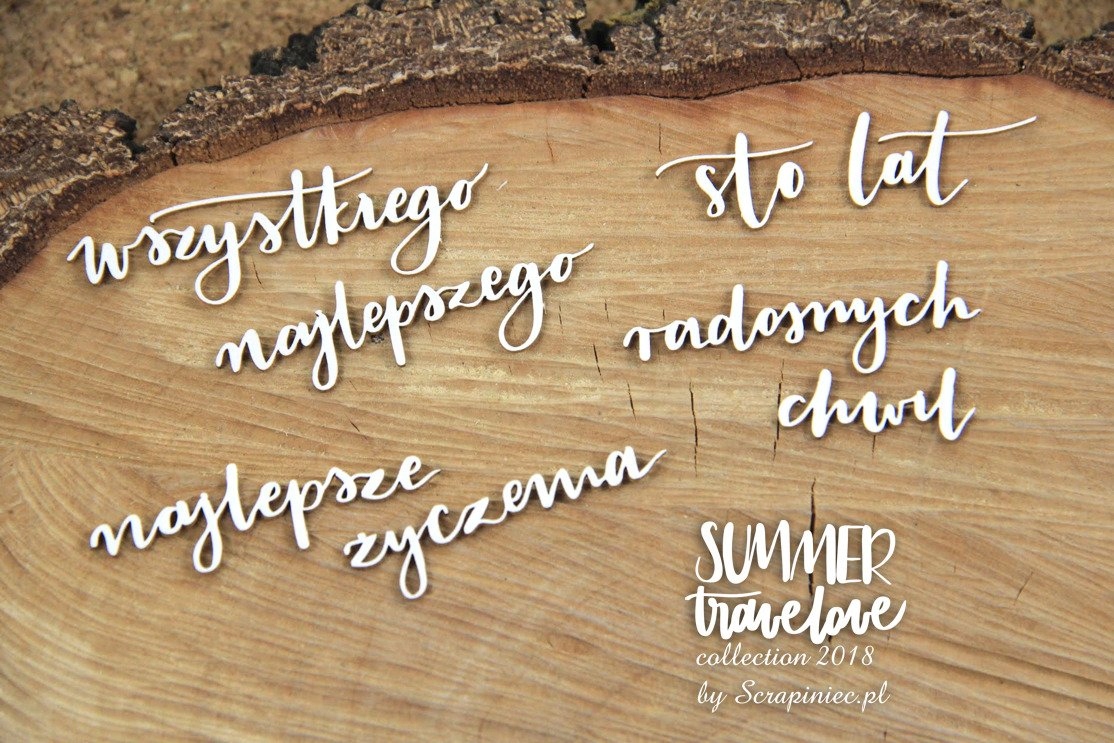 wszystkiego
najlepszego
sto lat
radosnych
chwil
najlepsze
życzenia
SUMMER
travelove
collection 2018
by Scrapiniec.pl